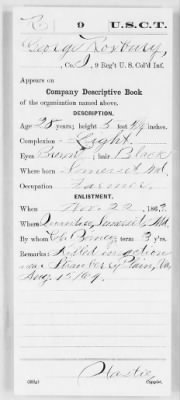 R | 9 | U.S.C.T.
George Roxbury
Co. , 9 Reg't U. S. Col'd Inf.
Appears on
Company Descriptive Book
of the organization named above.
DESCRIPTION.
Age 25 years; height 5 feet inches.
Complexion Light
Eyes Brown; hair Black
Where born Somerset Md.
Occupation Farmer
ENLISTMENT.
When Nov. 22, 1863.
Where Somerset, Md.
By whom Col. ; term 3 y'rs.
Remarks: Killed in action
near Strawberry Plain, Va
Aug. 15, 1864.
Copyist.